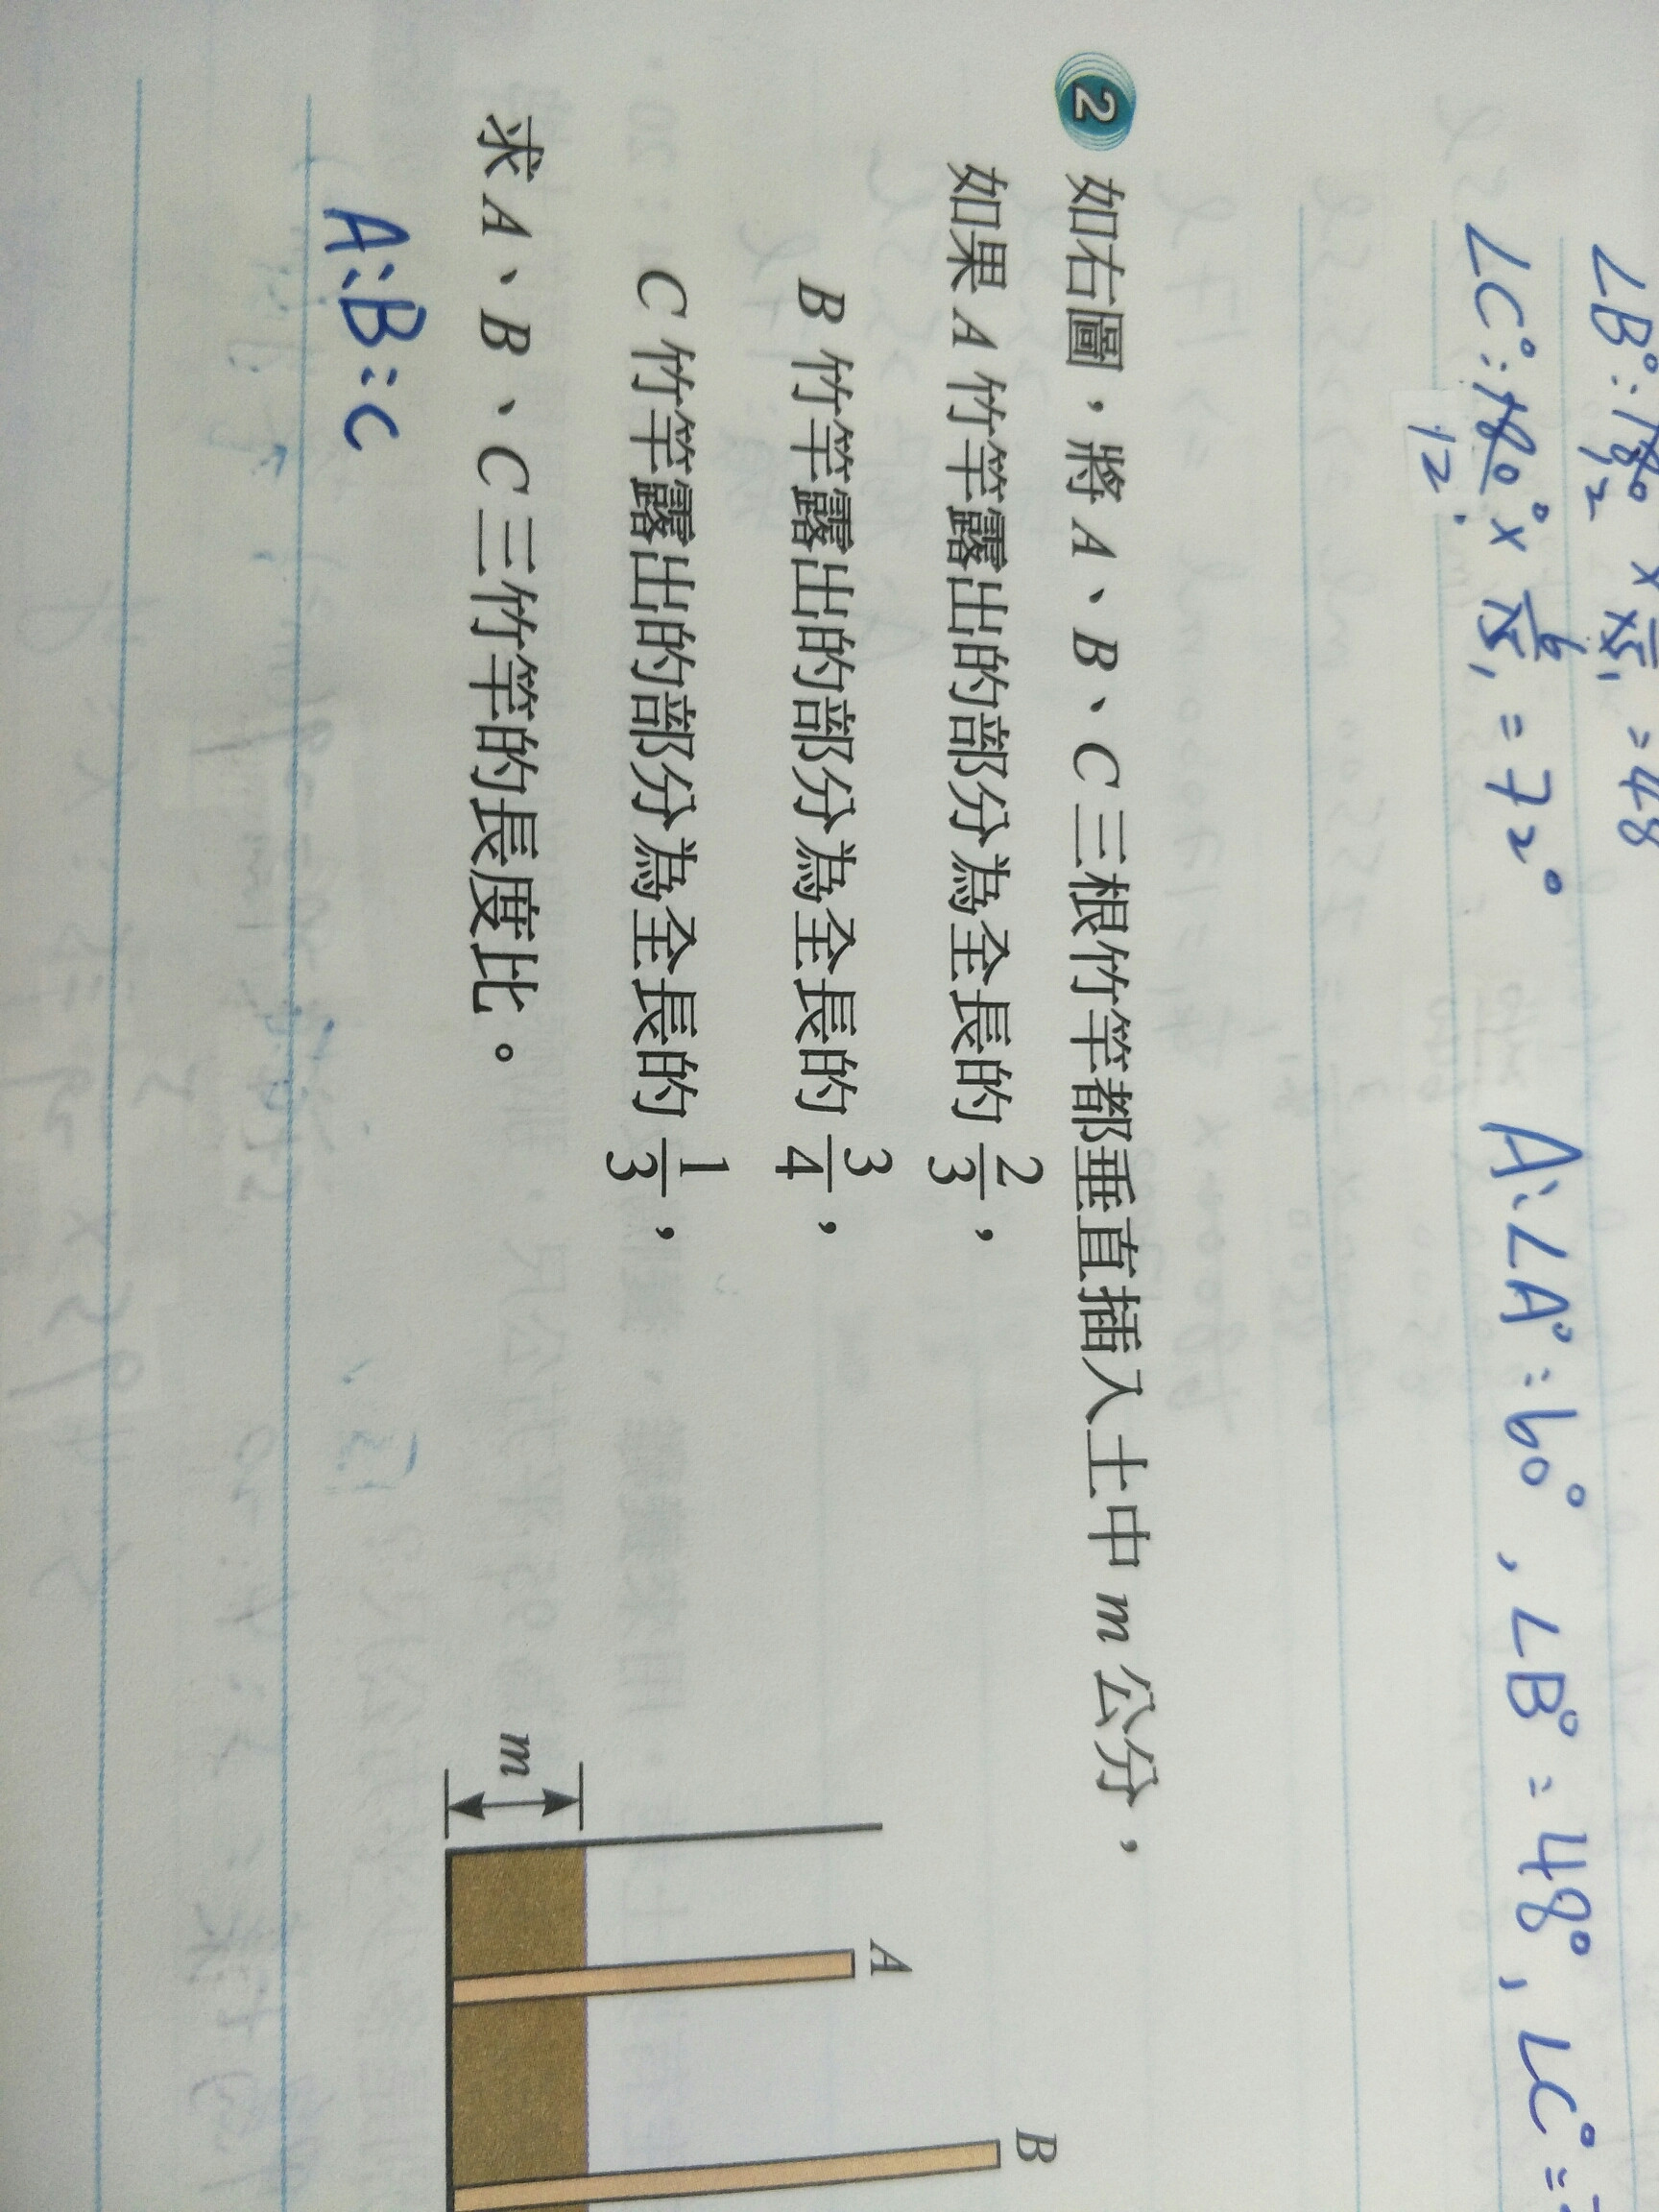 ∠B°:180 × 15 = 48
12 1
∠C°:180° × 6/15 = 72°
12 1
A:∠A°=60°, ∠B°=48°, ∠C°=
2 如右圖,將A、B、C三根竹竿都垂直插入土中m公分,
如果A竹竿露出的部分為全長的2/3,
B竹竿露出的部分為全長的3/4,
C竹竿露出的部分為全長的1/3,
求A、B、C三竹竿的長度比。
A:B:C
A
B
m